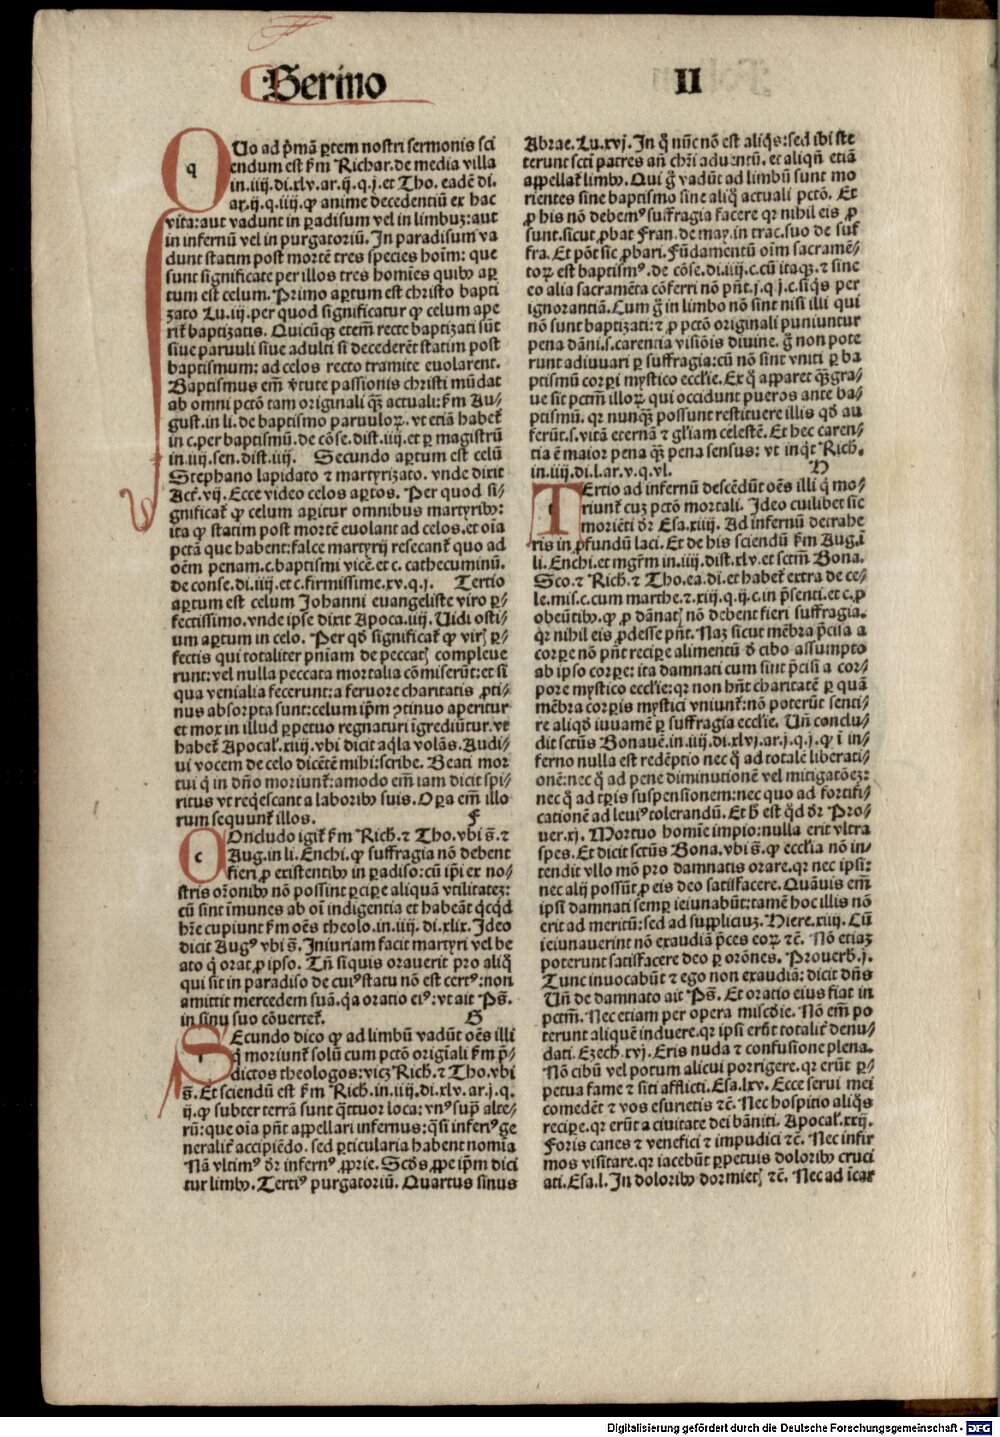 Sermo
II
QUo ad pͥmā ꝑtem nostri sermonis sci
endum est ẜm Richar. de media villa
in .iiij. di. xlv. ar. ij. q. j. et Tho. eadē di.
ar. ij. q. iiij. ꝙ anime decedentiū ex hac
vita: aut vadunt in ꝑadisum vel in limbuꝫ: aut
in infernū vel in purgatoriū. In paradisum va
dunt statim post mortē tres species hoīm: que
sunt significate per illos tres homīes quibꝰ aꝑ
tum est celum. Primo aꝑtum est christo bapti
zato Lu. iij. per quod significatur ꝙ celum ape
rit᷑ baptizatis. Quicūqꝫ etem̄ recte baptizati sūt
siue paruuli siue adulti si decederēt statim post
baptismum: ad celos recto tramite euolarent.
Baptismus em̄ v̓tute passionis christi mūdat
ab omni pctō tam originali qͣꝫ actuali: ẜm Au⸗
gust. in li. de baptismo paruuloꝝ. vt etiā habet᷑
in c. per baptismū. de cōse. dist. iiij. et ꝑ magistrū
in .iiij. sen. dist. iiij. Secundo aꝑtum est celū
Stephano lapidato et martyrizato. vnde dicit
Act᷑. vij. Ecce video celos aꝑtos. Per quod si⸗
gnificat᷑ ꝙ celum aꝑitur omnibus martyribꝰ:
ita ꝙ statim post mortē euolant ad celos. et oīa
pctā que habent: falce martyrij resecant᷑ quo ad
oēm penam. c. baptismi vicē. et c. cathecuminū.
de conse. di. iiij. et c. firmissime. xv. q. j. Tertio
aꝑtum est celum Johanni euangeliste viro ꝑ⸗
fectissimo. vnde ipse dicit Apoca. iiij. Uidi osti⸗
um aꝑtum in celo. Per qd̓ significat᷑ ꝙ viris ꝑ⸗
fectis qui totaliter pn̄iam de peccatis compleue
runt: vel nulla peccata mortalia cōmiserūt: et si
qua venialia fecerunt: a feruore charitatis ꝓti⸗
nus absorpta sunt: celum ip̄m ꝯtinuo aperitur
et mox in illud ꝑpetuo regnaturi īgrediūtur. vt
habet᷑ Apocal̓. xiiij. vbi dicit aqͥla volās. Audi⸗
ui vocem de celo dicētē mihi: scribe. Beati mor
tui qͥ in dn̄o moriunt᷑: amodo em̄ iam dicit spi⸗
ritus vt reqͥescant a laboribꝰ suis. Oꝑa em̄ illo
rum sequunt᷑ illos. F
COncludo igit᷑ ẜm Rich. ⁊ Tho. vbi s̄. ⁊
Aug. in li. Enchi. ꝙ suffragia nō debent
fieri ꝓ existentibꝰ in ꝑadiso: cū ip̄i ex no⸗
stris orōnibꝰ nō possint ꝑciꝑe aliquā vtilitateꝫ:
cū sint īmunes ab oī indigentia et habeāt qͥcqͥd
hr̄e cupiunt ẜm oēs theolo. in .iiij. di. xlix. Ideo
dicit Augꝰ vbi s̄. Iniuriam facit martyri vel be
ato qͥ orat ꝓ ipso. Tn̄ si quis orauerit pro aliqͦ
qui sit in paradiso de cuiꝰ statu nō est certꝰ: non
amittit mercedem suā. qͥa oratio eiꝰ: vt ait Ps̄.
in sinu suo cōuertet᷑. G
SEcundo dico ꝙ ad limbū vadūt oēs illi
qͥ moriunt᷑ solū cum pctō origīali ẜm p̄⸗
dictos theologos: vicꝫ Rich. ⁊ Tho. vbi
s̄. Et sciendū est ẜm Rich. in .iiij. di. xlv. ar. j. q.
ij. ꝙ subter terrā sunt qͣttuor loca: vnꝰ supͣ alte⸗
rū: que oīa pn̄t appellari infernus: qͣsi inferiꝰ ge
neralit᷑ accipiēdo. sed ꝑticularia habent nomīa
Nā vltimꝰ dr̄ infernꝰ ꝓprie. Scd̓s ꝓpe ip̄m dici
tur limbꝰ. Tertiꝰ purgatoriū. Quartus sinus
Abrae. Lu. xvj. In qͦ nūc nō est aliqͥs: sed ibi ste
terunt scti patres an̄ chr̄i aduentū. et aliqn̄ etiā
appellat᷑ limbꝰ. Qui gͦ vadūt ad limbū sunt mo
rientes sine baptismo sine aliqͦ actuali pctō. Et
ꝓ his nō debemꝰ suffragia facere qr nihil eis ꝓ
sunt. sicut ꝓbat Fran. de may. in trac. suo de suf
fra. Et pōt sic ꝓbari. Fūdamentū oīm sacramē⸗
toꝝ est baptismꝰ. de cōse. di. iiij. c. cū itaqꝫ. ⁊ sine
eo alia sacramēta cōferri nō pn̄t. j. q. j. c. si qͥs per
ignorantiā. Cum gͦ in limbo nō sint nisi illi qui
nō sunt baptizati: ⁊ ꝓ pctō originali puniuntur
pena dāni. s. carentia visiōis diuine. gͦ non pote
runt adiuuari ꝑ suffragia: cū nō sint vniti ꝑ ba
ptismū corpori mystico eccl̓ie. Ex qͦ apparet qͣꝫ gra⸗
ue sit pctm̄ illoꝝ qui occidunt pueros ante ba⸗
ptismū. qr nunqͣꝫ possunt restituere illis qd̓ au
ferūt. s. vitā eternā ⁊ gl̓iam celestē. Et hec caren⸗
tia ē maior pena qͣꝫ pena sensus: vt inqͥt Rich.
in .iiij. di. l. ar. v. q. vl. H
TErtio ad infernū descēdūt oēs illi qͥ mo⸗
riunt᷑ cuꝫ pctō mortali. Ideo cuilibet sic
moriēti dr̄ Esa. xiiij. Ad infernū detrahe
ris in ꝓfundū laci. Et de his sciendū ẜm Aug. ī
li. Enchi. et mgr̄m in .iiij. dist. xlv. et sctm̄ Bona.
Sco. ⁊ Rich. ⁊ Tho. ea. di. et habet᷑ extra de ce⸗
le. mis. c. cum marthe. ⁊ .xiij. q. ij. c. in p̄senti. et c. ꝓ
obeūtibꝰ. ꝙ ꝓ dānatis nō debent fieri suffragia.
qr nihil eis ꝓdesse pn̄t. Naꝫ sicut mēbra p̄cisa a
corꝑe nō pn̄t reciꝑe alimentū d̓ cibo assumpto
ab ipso corꝑe: ita damnati cum sint p̄cisi a cor⸗
pore mystico eccl̓ie: qr non hn̄t charitatē ꝑ quā
mēbra corꝑis mystici vniunt᷑: nō poterūt senti⸗
re aliqd̓ iuuamē ꝑ suffragia eccl̓ie. Un̄ conclu⸗
dit sctūs Bonauē. in .iiij. di. xlvj. ar. j. q. j. ꝙ ī in⸗
ferno nulla est redēptio nec qͦ ad totalē liberati⸗
onē: nec qͦ ad pene diminutionē vel mitigatōeꝫ:
nec qͦ ad tꝑis suspensionem: nec quo ad fortifi⸗
cationē ad leuiꝰ tolerandū. Et h̓ est qd̓ dr̄ Pro⸗
uer. xj. Mortuo homīe impio: nulla erit vltra
spes. Et dicit sctūs Bona. vbi s̄. ꝙ eccl̓ia nō in⸗
tendit vllo mō pro damnatis orare. qr nec ipsi:
nec alij possūt ꝓ eis deo satisfacere. Quāuis em̄
ipsi damnati semꝑ ieiunabūt: tamē hoc illis nō
erit ad meritū: sed ad suppliciuꝫ. Hiere. xiiij. Cū
ieiunauerint nō exaudiā p̄ces eoꝝ ⁊c̄. Nō etiaꝫ
poterunt satisfacere deo ꝑ orōnes. Prouerb. j.
Tunc inuocabūt ⁊ ego non exaudiā: dicit dn̄s
Un̄ de damnato ait Ps̄. Et oratio eius fiat in
pctm̄. Nec etiam per opera miscd̓ie. Nō em̄ po
terunt aliquē induere. qr ipsi erūt totalit᷑ denu⸗
dati. Ezech. xvj. Eris nuda ⁊ confusione plena.
Nō cibū vel potum alicui porrigere. qr erūt ꝑ⸗
petua fame ⁊ siti afflicti. Esa. lxv. Ecce serui mei
comedēt ⁊ vos esurietis ⁊c̄. Nec hospitio aliqͥs
reciꝑe. qr erūt a ciuitate dei bāniti. Apocal̓. xxij.
Foris canes ⁊ venefici ⁊ impudici ⁊c̄. Nec infir
mos visitare. qr iacebūt ꝑpetuis doloribꝰ cruci
ati. Esa. l. In doloribꝰ dormietis ⁊c̄. Nec ad īcar
Digitalisierung gefördert durch die Deutsche Forschungsgemeinschaft - DFG